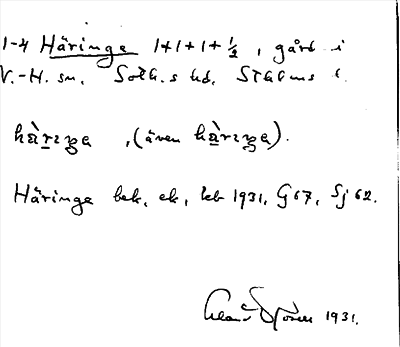 1-4 Häringe 1+1+1+½, gård i
V.-H. sn. Soth.s hd. Sthlms l.
hä̀ringa, (även hä̀ringa).
Häringe bek, ek, leb 1931, G 67, Sj 62.
1931.